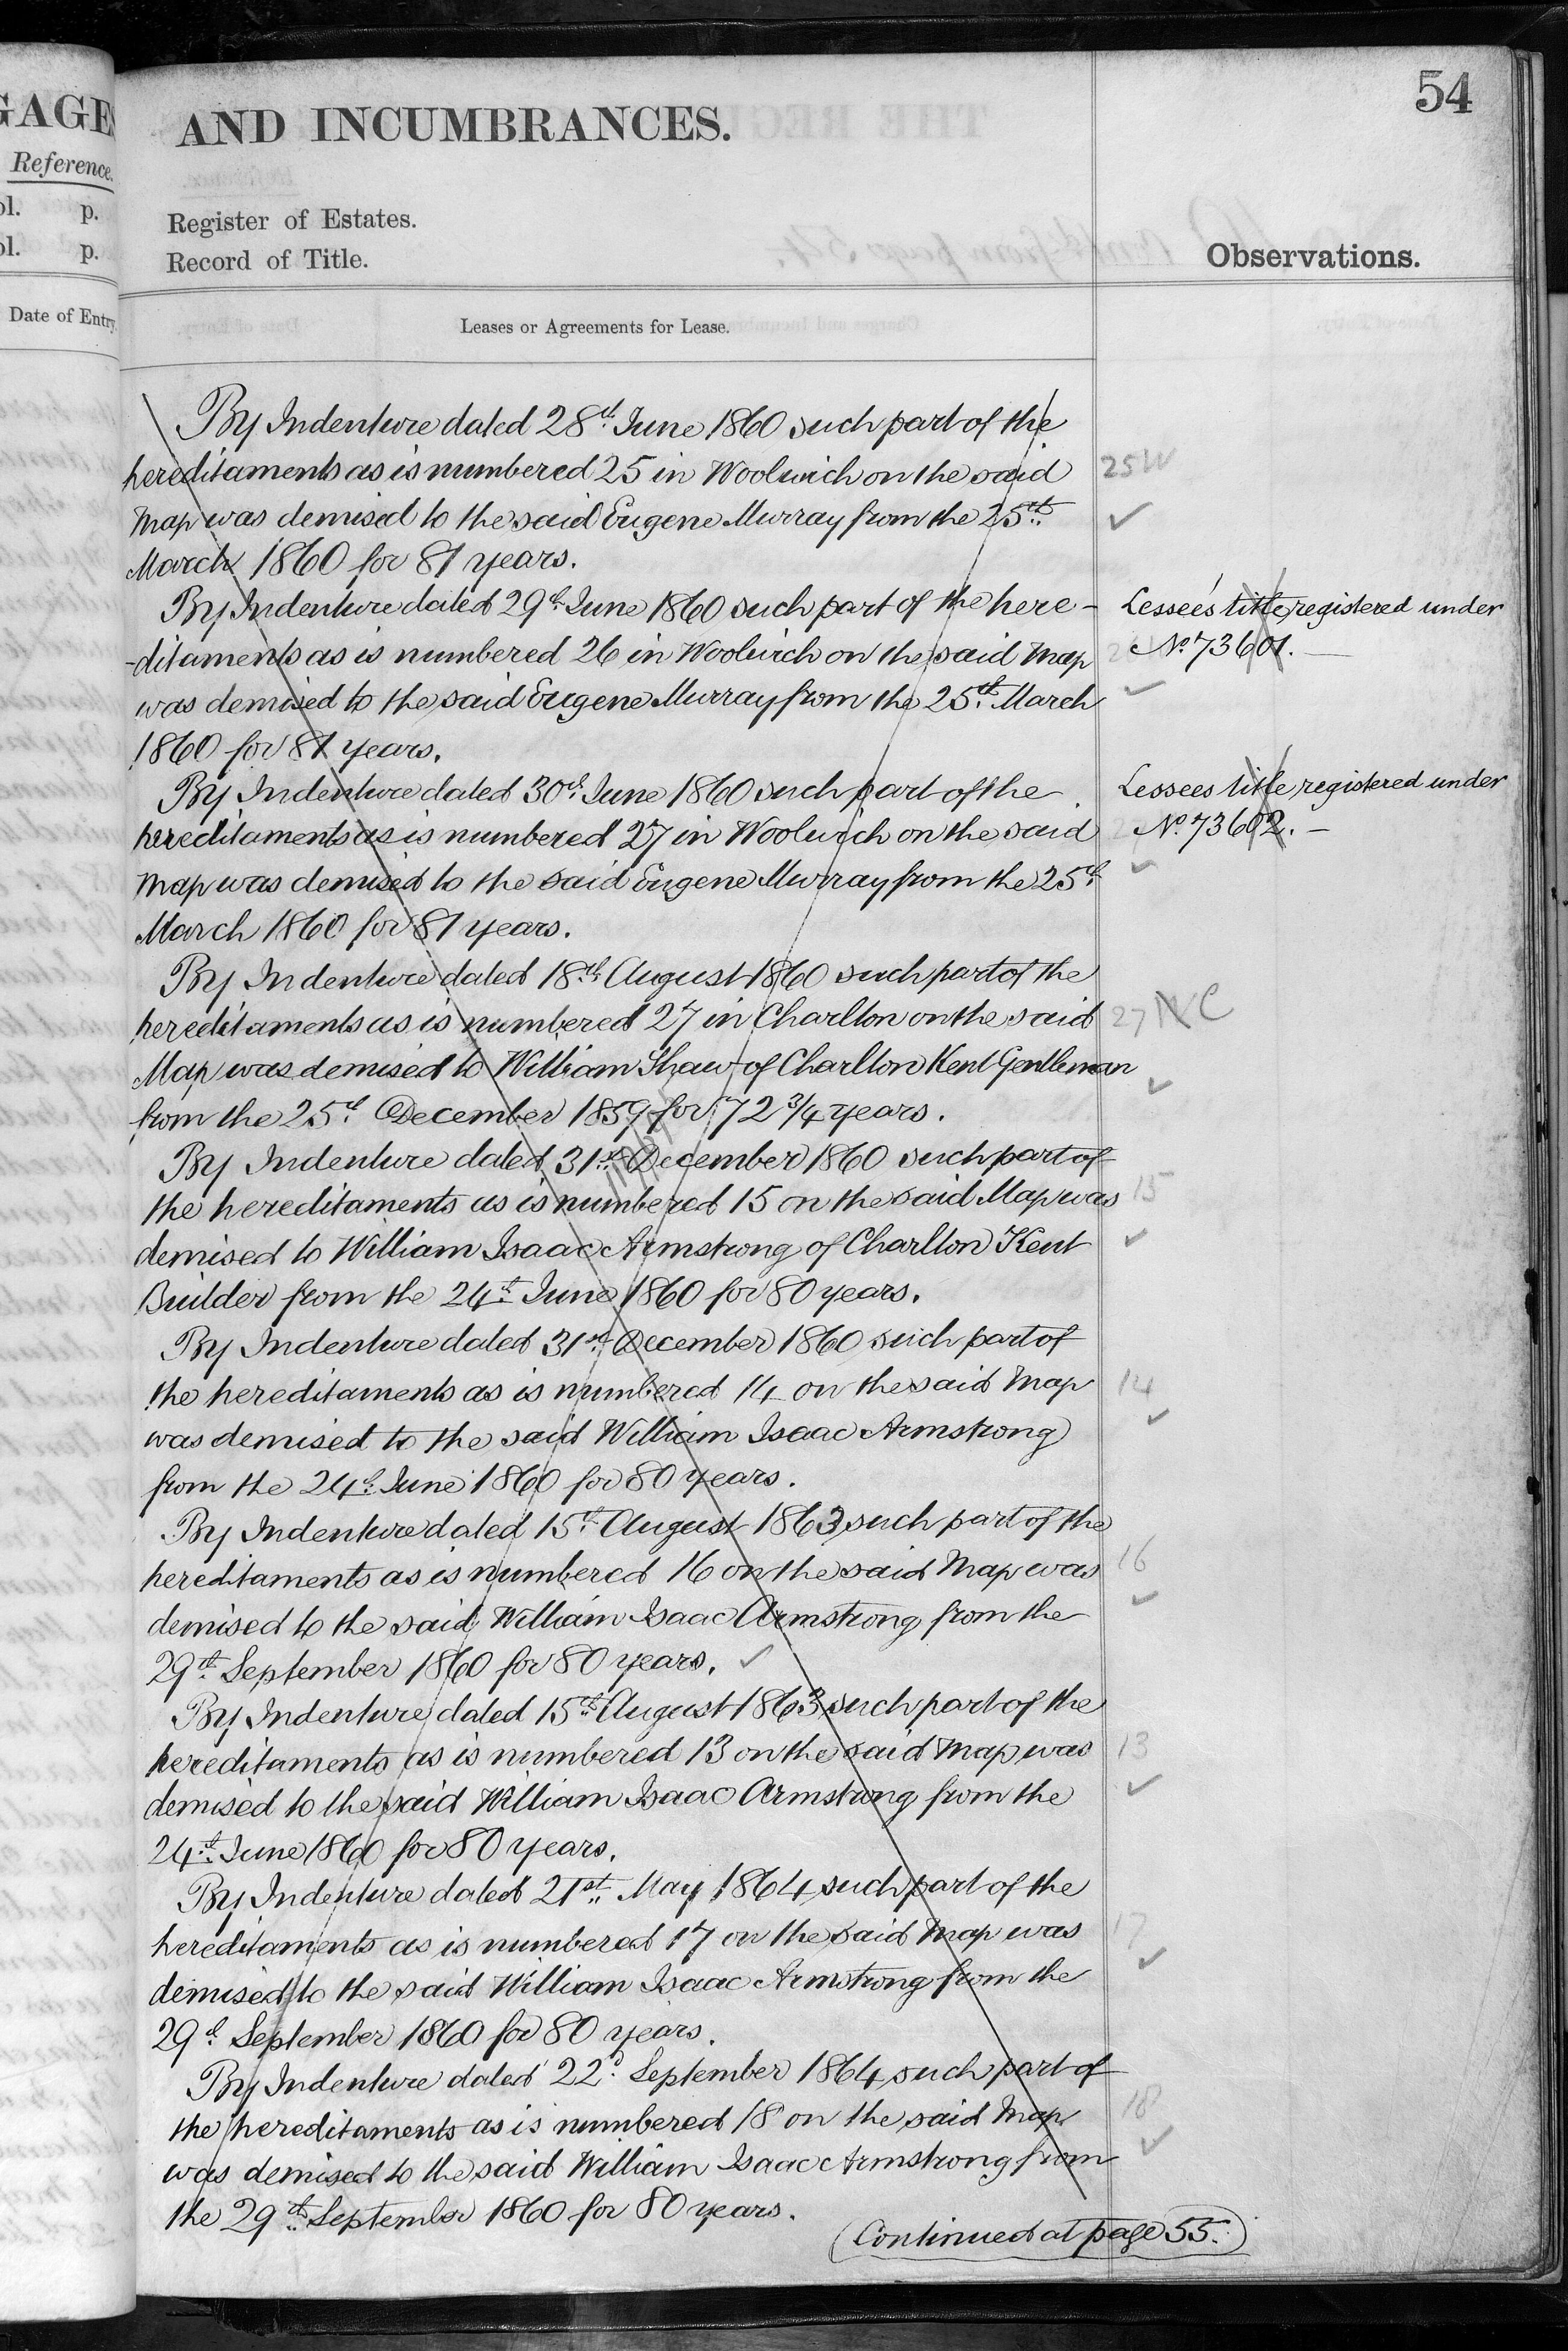 GAGES
Reference.
ol. p.
ol. p.
Date of Entry.
54
AND INCUMBRANCES.
Register of Estates.
Record of Title.
Observations.
Leases or Agreements for Lease.
By Indenture dated 28th June 1860 such part of the
hereditaments as is numbered 25 in Woolwich on the said
25 W
Map was demised to the said Eugene Murray from the 25th
March 1860 for 81 years.
By Indenture dated 29th June 1860 such part of the here-
Lessee's title registered under
-ditaments as is numbered 26 in Woolwich on the said Map
No. 73601.
was demised to the said Eugene Murray from the 25th March
1860 for 81 years.
By Indenture dated 30th June 1860 such part of the
Lessees title registered under
hereditaments as is numbered 27 in Woolwich on the said
No. 73602.
Map was demised to the said Eugene Murray from the 25th
March 1860 for 81 years.
By Indenture dated 18th August 1860 such part of the
hereditaments as is numbered 27 in Charlton on the said
27 NC
Map was demised to William Shaw of Charlton Kent Gentleman
from the 25th December 1859 for 72 3/4 years.
By Indenture dated 31st December 1860 such part of
the hereditaments as is numbered 15 on the said Map was
15
demised to William Isaac Armstrong of Charlton Kent
Builder from the 24th June 1860 for 80 years.
By Indenture dated 31st December 1860 such part of
the hereditaments as is numbered 14 on the said Map
14
was demised to the said William Isaac Armstrong
from the 24th June 1860 for 80 years.
By Indenture dated 15th August 1863 such part of the
hereditaments as is numbered 16 on the said Map was
16
demised to the said William Isaac Armstrong from the
29th September 1860 for 80 years.
By Indenture dated 15th August 1863 such part of the
hereditaments as is numbered 13 on the said Map was
13
demised to the said William Isaac Armstrong from the
24th June 1860 for 80 years.
By Indenture dated 21st May 1864 such part of the
hereditaments as is numbered 17 on the said Map was
17
demised to the said William Isaac Armstrong from the
29th September 1860 for 80 years.
By Indenture dated 22d September 1864 such part of
the hereditaments as is numbered 18 on the said Map
18
was demised to the said William Isaac Armstrong from
the 29th September 1860 for 80 years.
(Continued at page 55.)